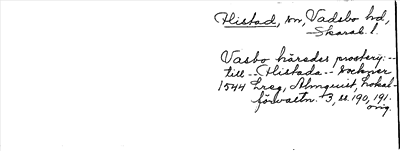 Histad, sn, Vadsbo hd,
Skarab. l.
Vasbo häredes prosterij: --
till -- Histada -- sockner
1544 Lreg, Almquist, Lokal-
förvaltn. 3, s. 190, 191.
orig.